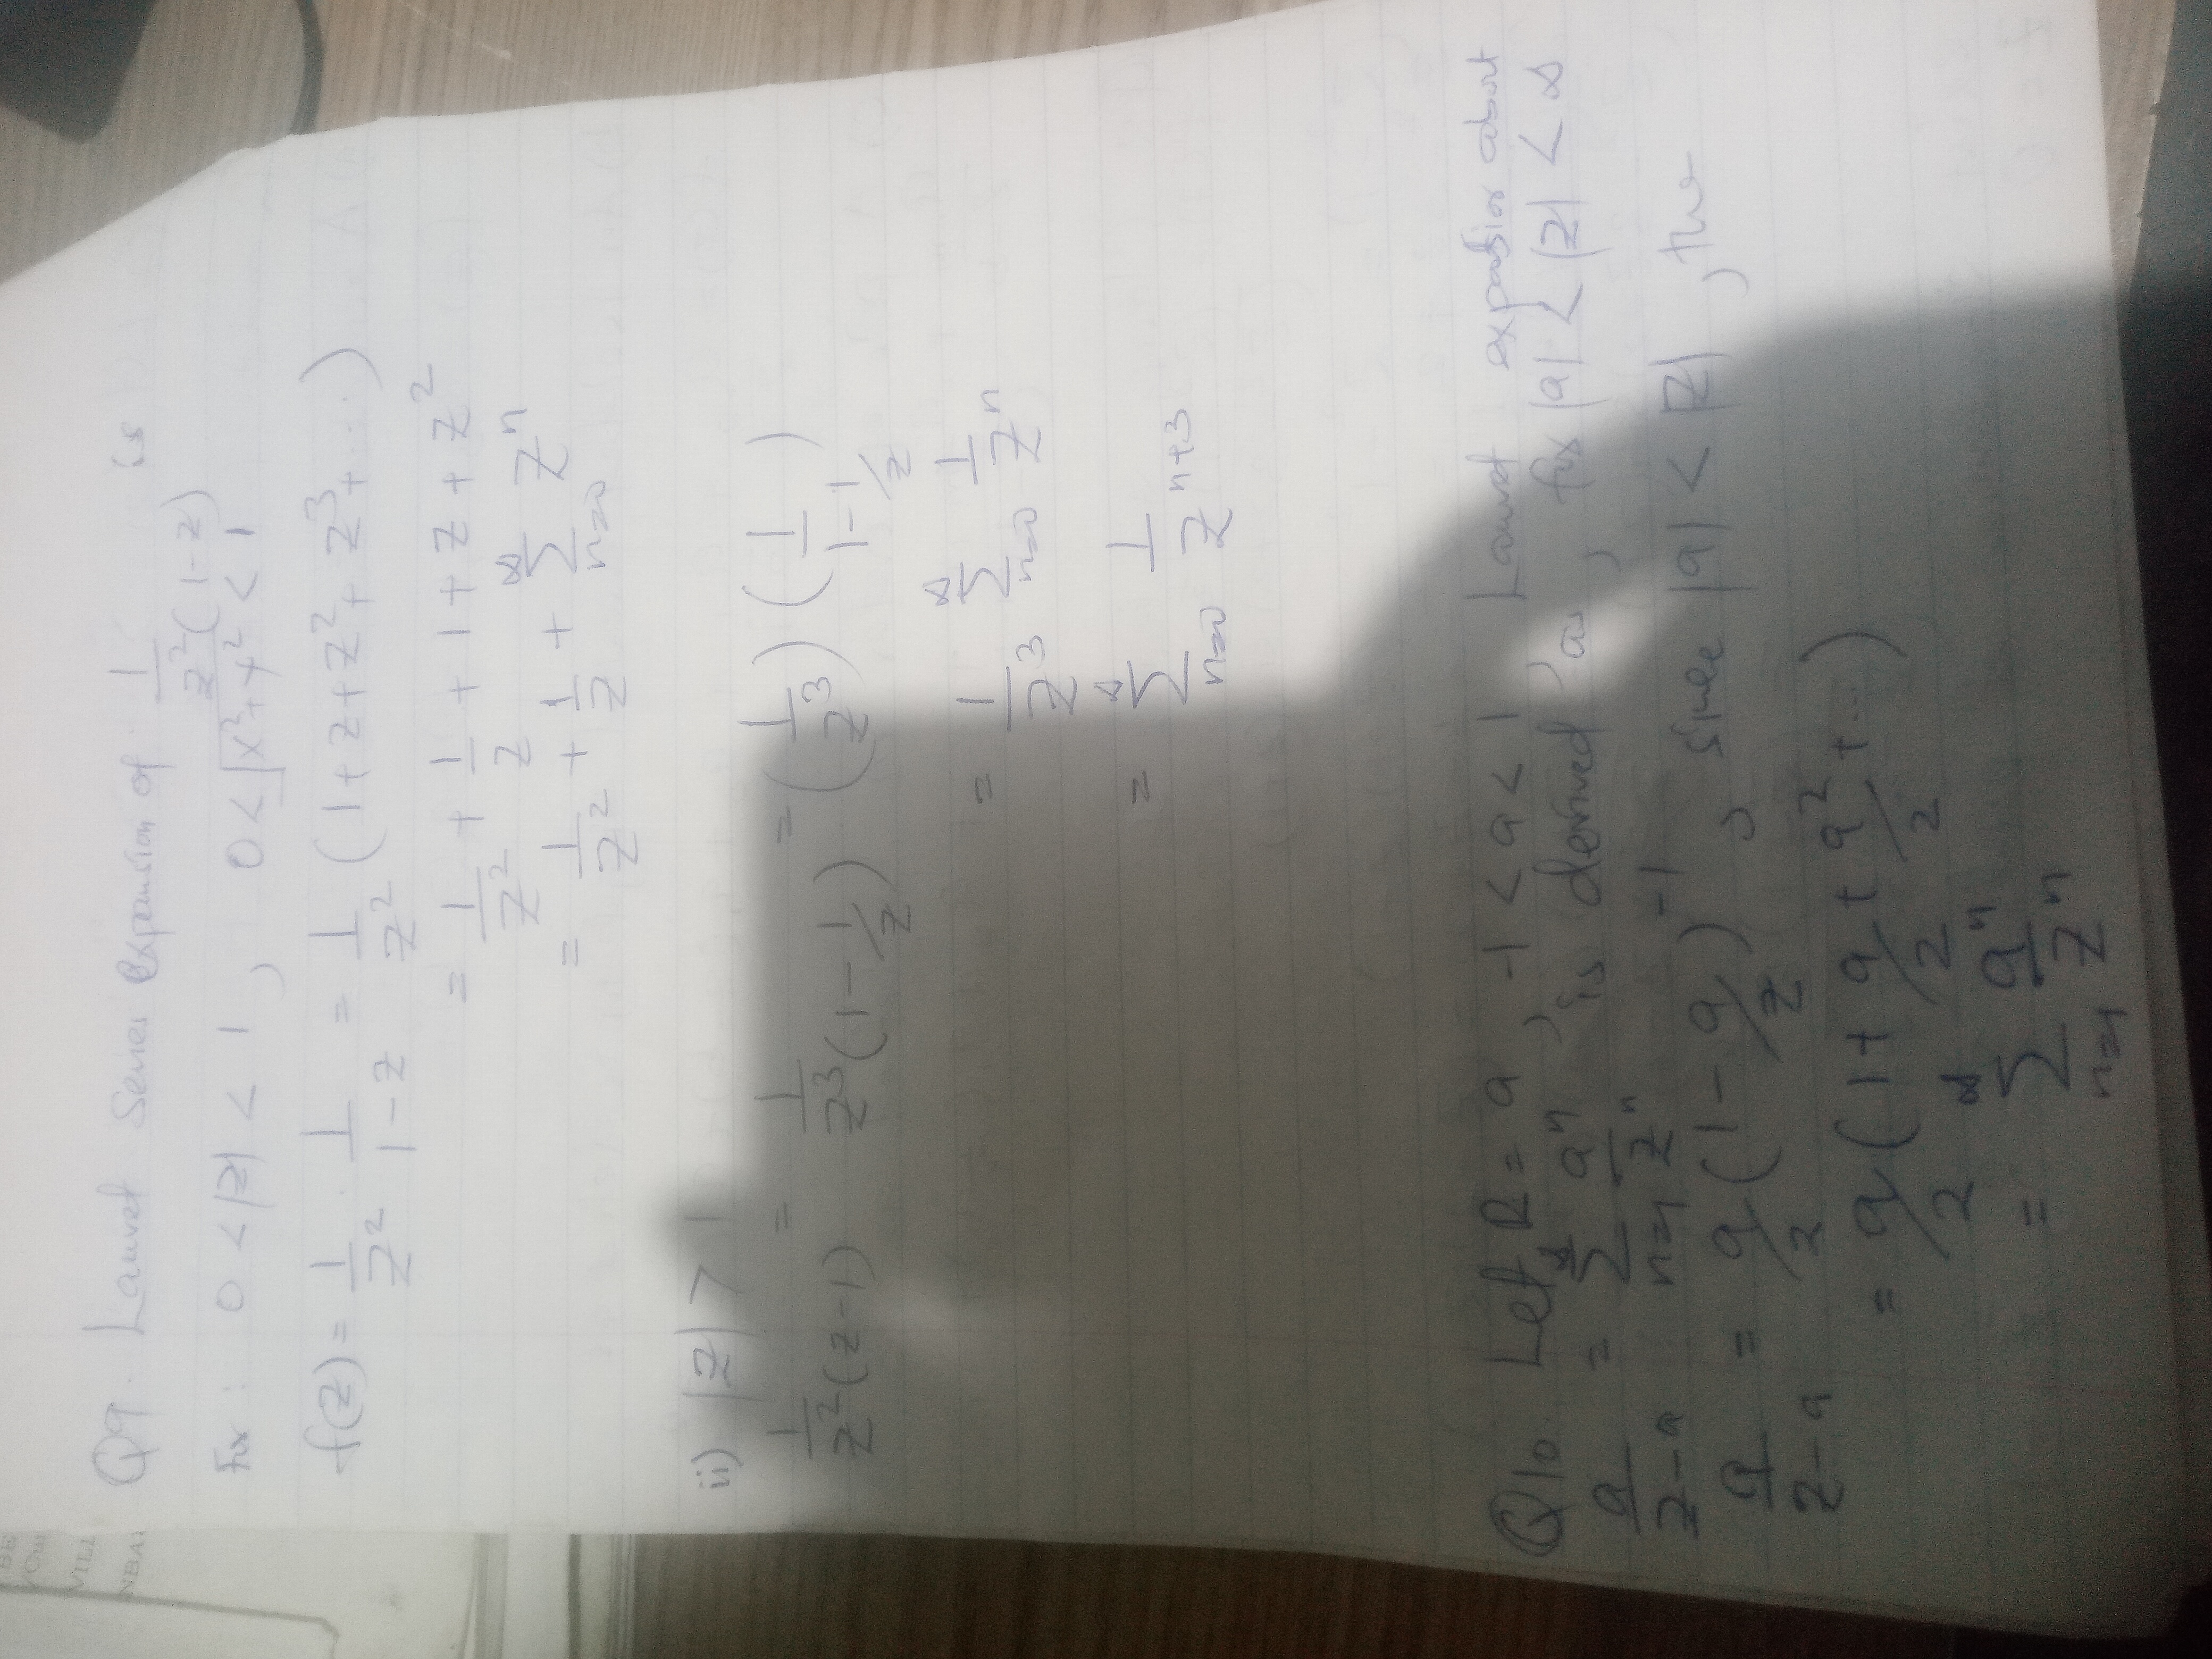 BE
VILL
NBA
Q9. Lauret Series Expansion of 1/z²(1-z) is
For : 0 < |z| < 1 , 0 < √x²+y² < 1
f(z) = 1/z² · 1/1-z = 1/z² (1+z+z²+z³+...)
= 1/z² + 1/z + 1 + z + z²
= 1/z² + 1/z + ∞∑n=0 zⁿ
ii) |z| > 1
1/z²(z-1) = 1/z³(1-1/z) = (1/z³) (1/1-1/z)
= 1/z³ ∞∑n=0 1/zⁿ
= ∞∑n=0 1/zⁿ⁺³
Q10. Let R = a , -1 < a < 1 , Lauret expansion about
a/z-a = ∞∑n=1 aⁿ/zⁿ is derived as , for |a| < |z| < ∞
a/z-a = a/z (1 - a/z)⁻¹ , since |a| < |z| , the
= a/2 (1 + a/2 + a²/2 + ...)
= ∞∑n=1 aⁿ/zⁿ